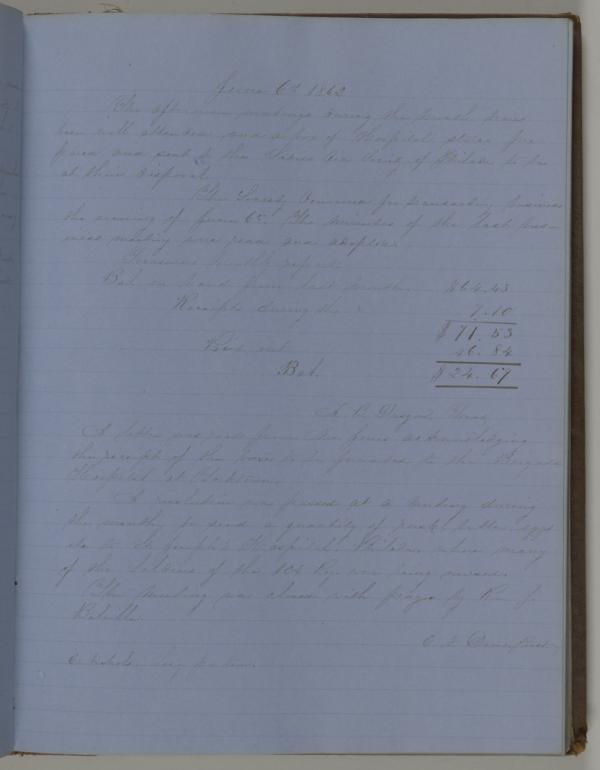 June 6th 1862
The afternoon meetings during the month have
been well attended and a box of Hospital stores pre
pared and sent to the Ladies Aid Society of Philada to be
at their disposal
The Society convened for transacting business
the evening of June 6th. The minutes of the last bus-
iness meeting were read and adopted.
Treasurers monthly report.
Bal on hand from last month $64.43
Receipts during the " 7.10
$71.53
Paid out 46.84
Bal. $24.69
Treas
A letter was read from acknowledging
the receipt of the boxes to be forwarded to the Brigade
Hospital at Yorktown
A resolution was passed at a meeting during
the month to send a quantity of butter eggs
etc to St Joseph's Hospital Philada where many
of the soldiers of the 104 Reg. were being nursed.
The meeting was closed with prayer by Rev J.
Pres
Secy pro tem.